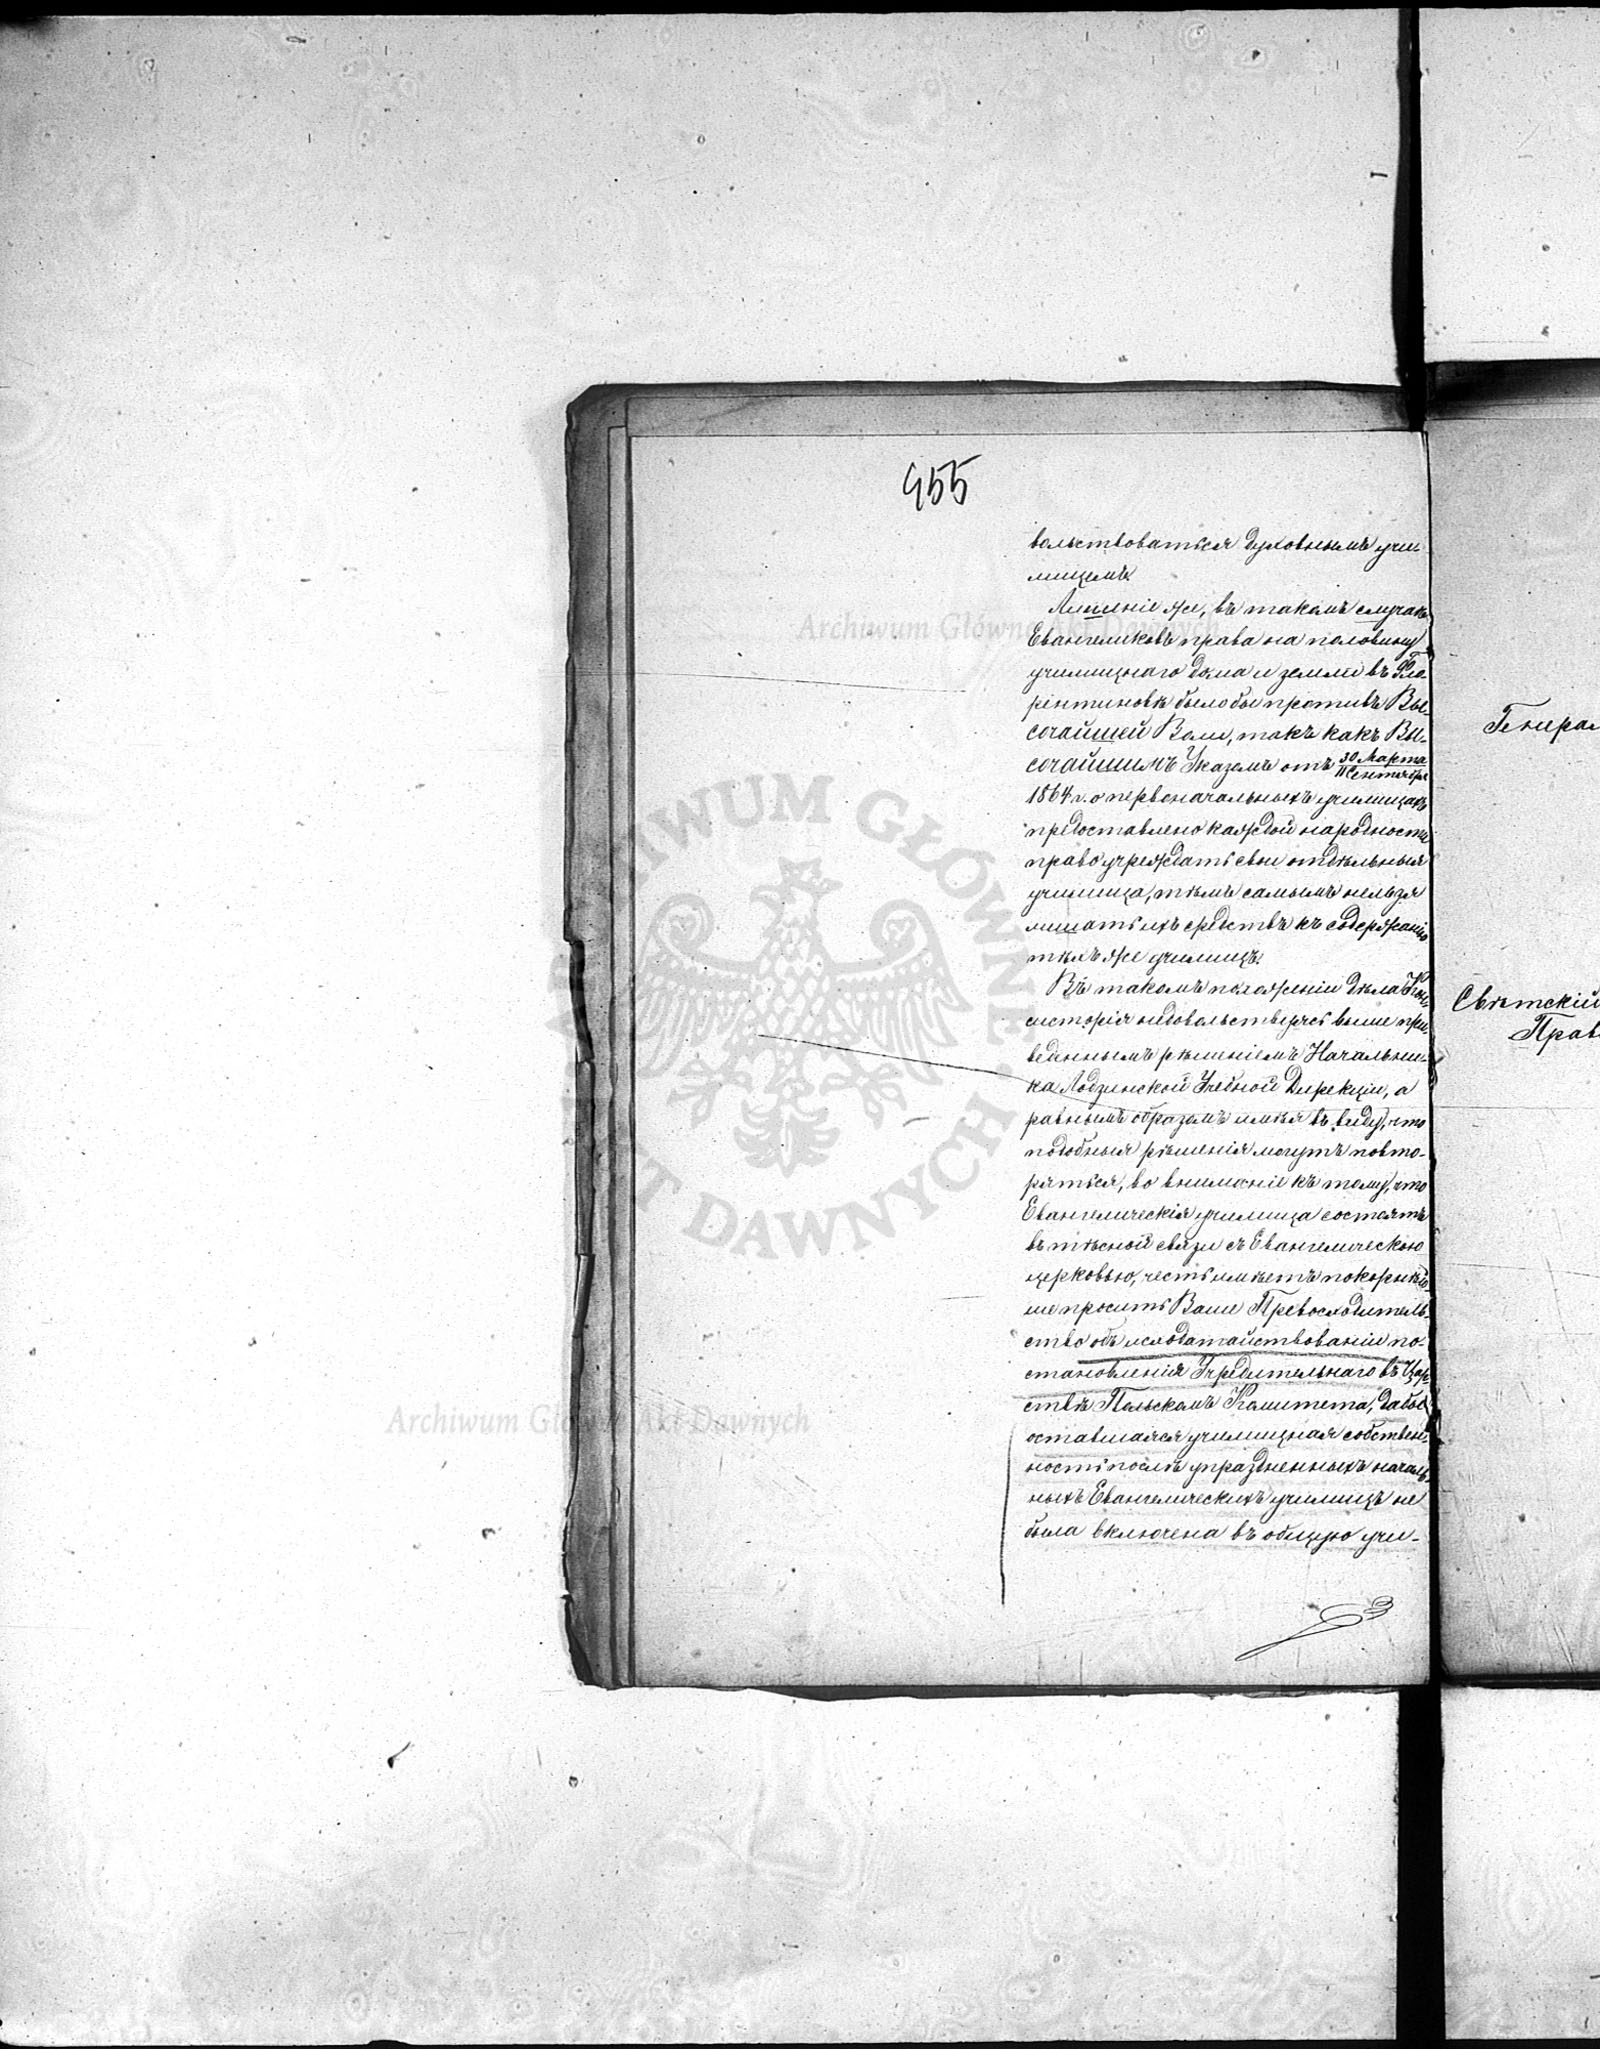 455
вольствоваться духовнымъ учи-
лищемъ.
Лишеніе же, въ такомъ случаѣ
Евангеликовъ права на половину
училищнаго дома и земли въ Фло-
рентиновѣ было бы противъ Вы-
сочайшей Воли, такъ какъ Вы-
сочайшимъ Указомъ отъ 30 Марта
11 Сентября
1864 г. о первоначальныхъ училищахъ
предоставлено каждой народности
право учреждать свои отдѣльныя
училища, тѣмъ самымъ нельзя
лишать ихъ средствъ къ содержанію
тѣхъ же училищъ.
Въ такомъ положеніи дѣла Кон-
систорія недовольствуясь выше при-
веденнымъ рѣшеніемъ Начальни-
ка Лодзинской Учебной Дирекціи, а
равнымъ образомъ имѣя въ виду, что
подобныя рѣшенія могутъ повто-
ряться, во вниманіе къ тому, что
Евангелическія училища состоятъ
въ тѣсной связи съ Евангелическою
церковью, честь имѣетъ покорнѣй-
ше просить Ваше Превосходитель-
ство объ исходатайствованіи по-
становленія Учредительнаго въ Цар-
ствѣ Польскомъ Комитета, дабы
оставшаяся училищная собствен-
ность послѣ упраздненныхъ началь-
ныхъ Евангелическихъ училищъ не
была включена въ общую учи-
Генерал
Свѣтскій
Прав
Archiwum Główne Akt Dawnych
Archiwum Główne Akt Dawnych
ARCHIWUM GŁÓWNE AKT DAWNYCH